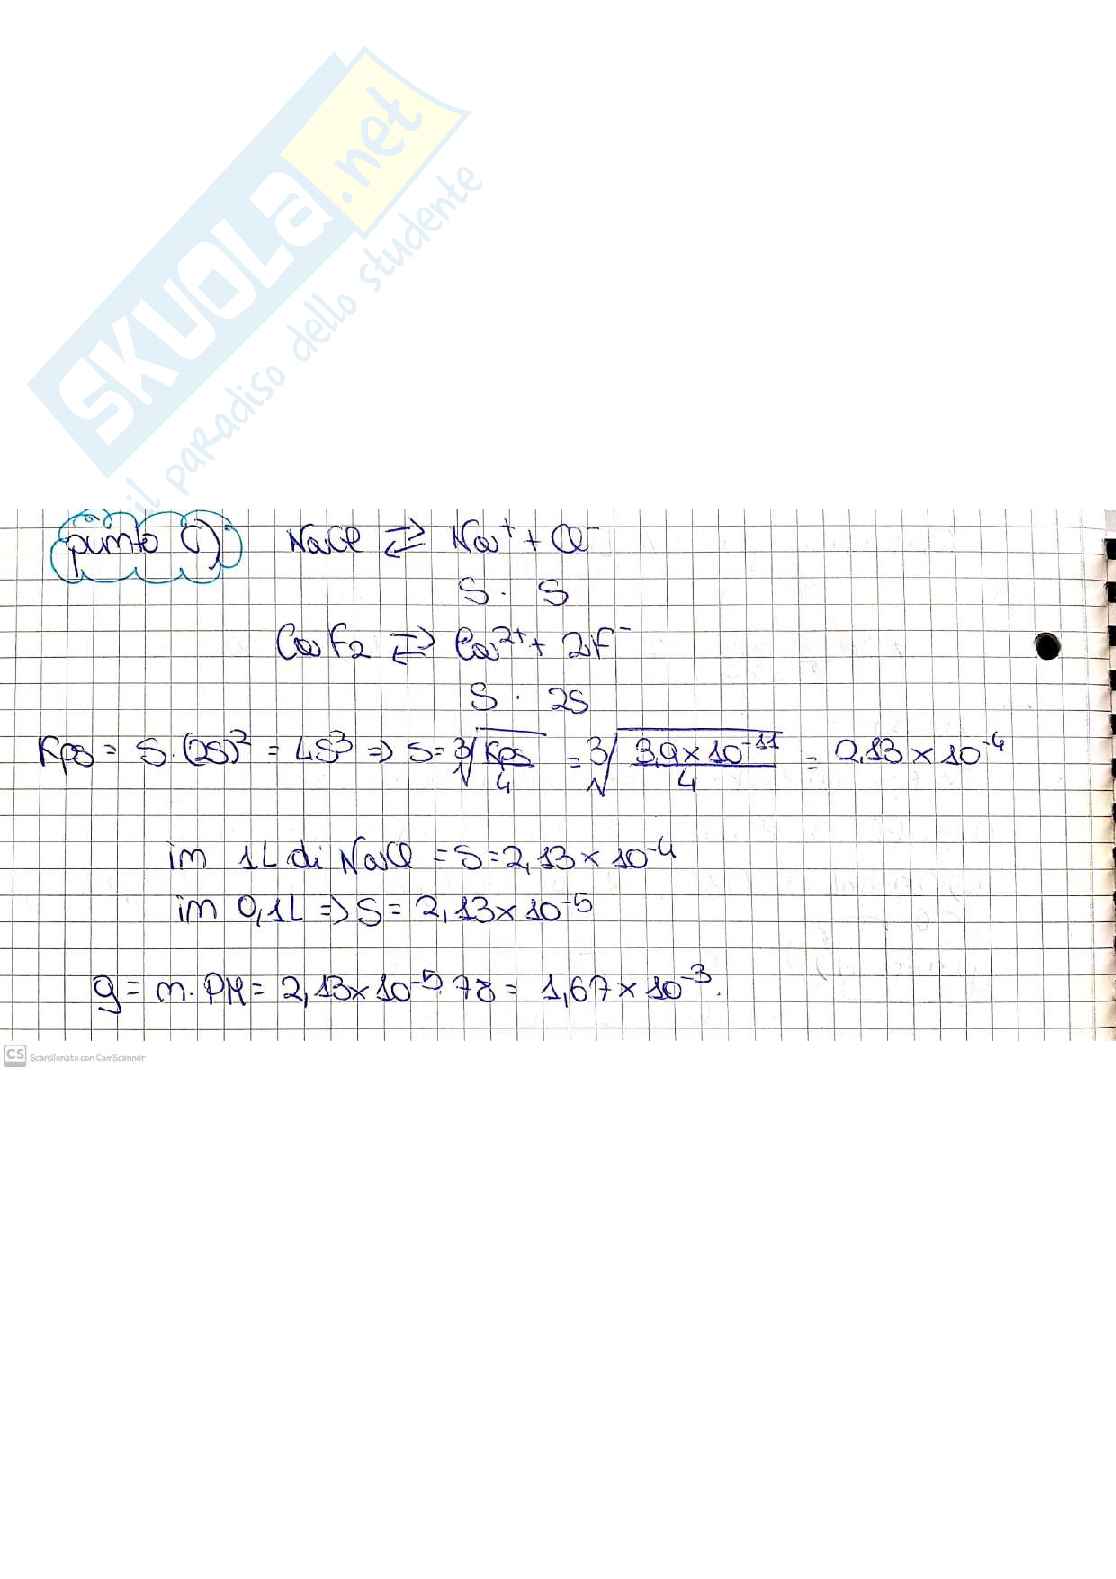 SKUOLA.net
il paradiso dello studente
punto C) NaCl ⇄ Na⁺ + Cl⁻
S · S
CaF₂ ⇄ Ca²⁺ + 2F⁻
S · 2S
Kps = S·(2S)² = 4S³ ⇒ S = ∛(Kps/4) = ∛(3,9 × 10⁻¹¹/4) = 2,13 × 10⁻⁴
in 1L di NaCl = S = 2,13 × 10⁻⁴
in 0,1L ⇒ S = 2,13 × 10⁻⁵
g = n · PM = 2,13 × 10⁻⁵ · 78 = 1,67 × 10⁻³.
CS Scansionato con CamScanner